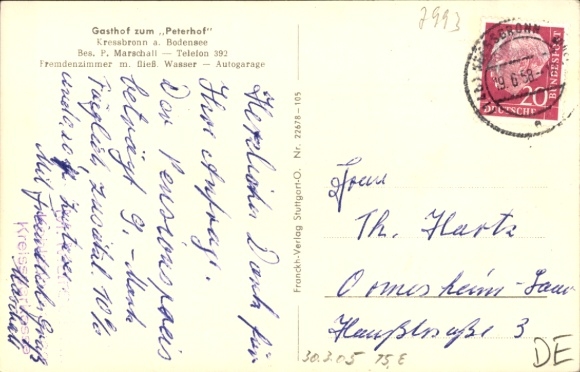 Gasthof zum „Peterhof"
Kressbronn a. Bodensee
Bes. P. Marschall — Telefon 392
Fremdenzimmer m. fließ. Wasser — Autogarage
Herzlichen Dank für
Ihre Anfrage.
Der Pensionspreis
beträgt 9.- Mark
täglich zuzügl. 10%
Mit freundlichem Gruß
Marschall
Franckh-Verlag Stuttgart-O. Nr. 22678-105
7993
KRESSBRONN
20
DEUTSCHE BUNDESPOST
Th. Hartz
Ormesheim-Saar
Hauptstraße 3
30.3.05 15,E
DE